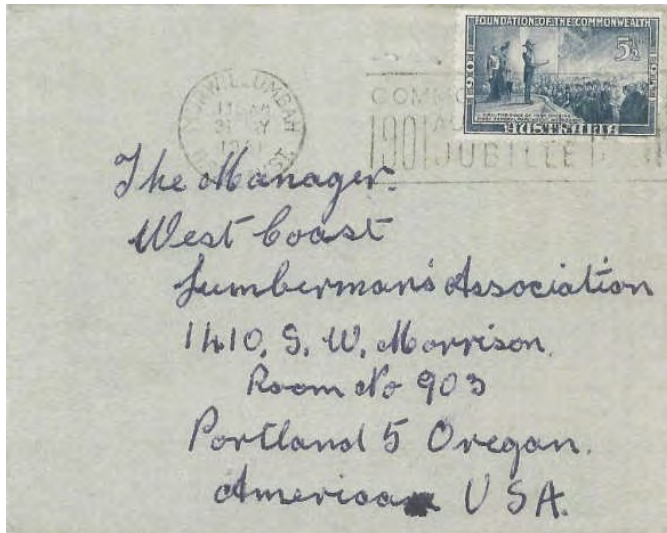 FOUNDATION OF THE COMMONWEALTH
1901 1951
5½
AUSTRALIA
MURWILLUMBAH
1951
COMMO
1901 JUBILEE
The Manager.
West Coast
Lumberman's Association
1410, S. W. Morrison.
Room No 903
Portland 5 Oregan.
America USA.